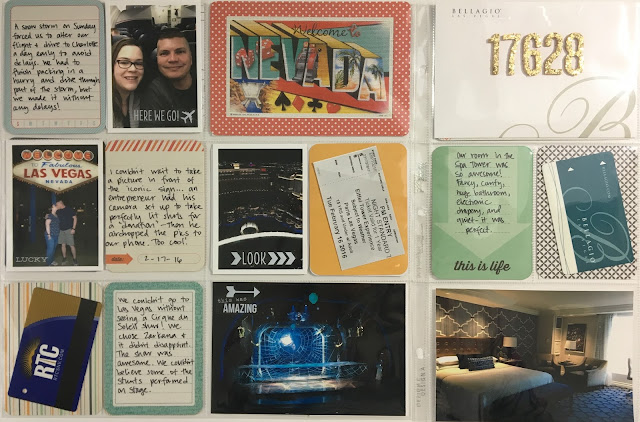 A snow storm on Sunday
forced us to alter our
flight & drive to Charlotte
a day early to avoid
delays. We had to
finish packing in a
hurry and drive through
part of the storm, but
we made it without
any delays!
HERE WE GO!
Welcome to
NEVADA
BELLAGIO
LAS VEGAS
17G28
B
WELCOME
To Fabulous
LAS VEGAS
NEVADA
LUCKY
I couldn't wait to take
a picture in front of
the iconic sign... an
entrepreneur had his
camera set up to take
perfectly lit shots for
a "donation". Then he
airdropped the pics to
our phone. Too cool!
2-17-16
LOOK
7PM ENTRY
Eiffel Tower Experience
Paris Las Vegas
Tue February 16 2016
Our room in the
Spa Tower was
so awesome!
Fancy, comfy,
huge bathroom,
electronic
drapery, and
quiet - it was
perfect.
this is life
BELLAGIO
B
RTC
We couldn't go to
Las Vegas without
seeing a Cirque du
Soleil show! We
chose Zarkana &
it didn't disappoint.
The show was
awesome. We couldn't
believe some of the
stunts performed
on stage.
this was
AMAZING